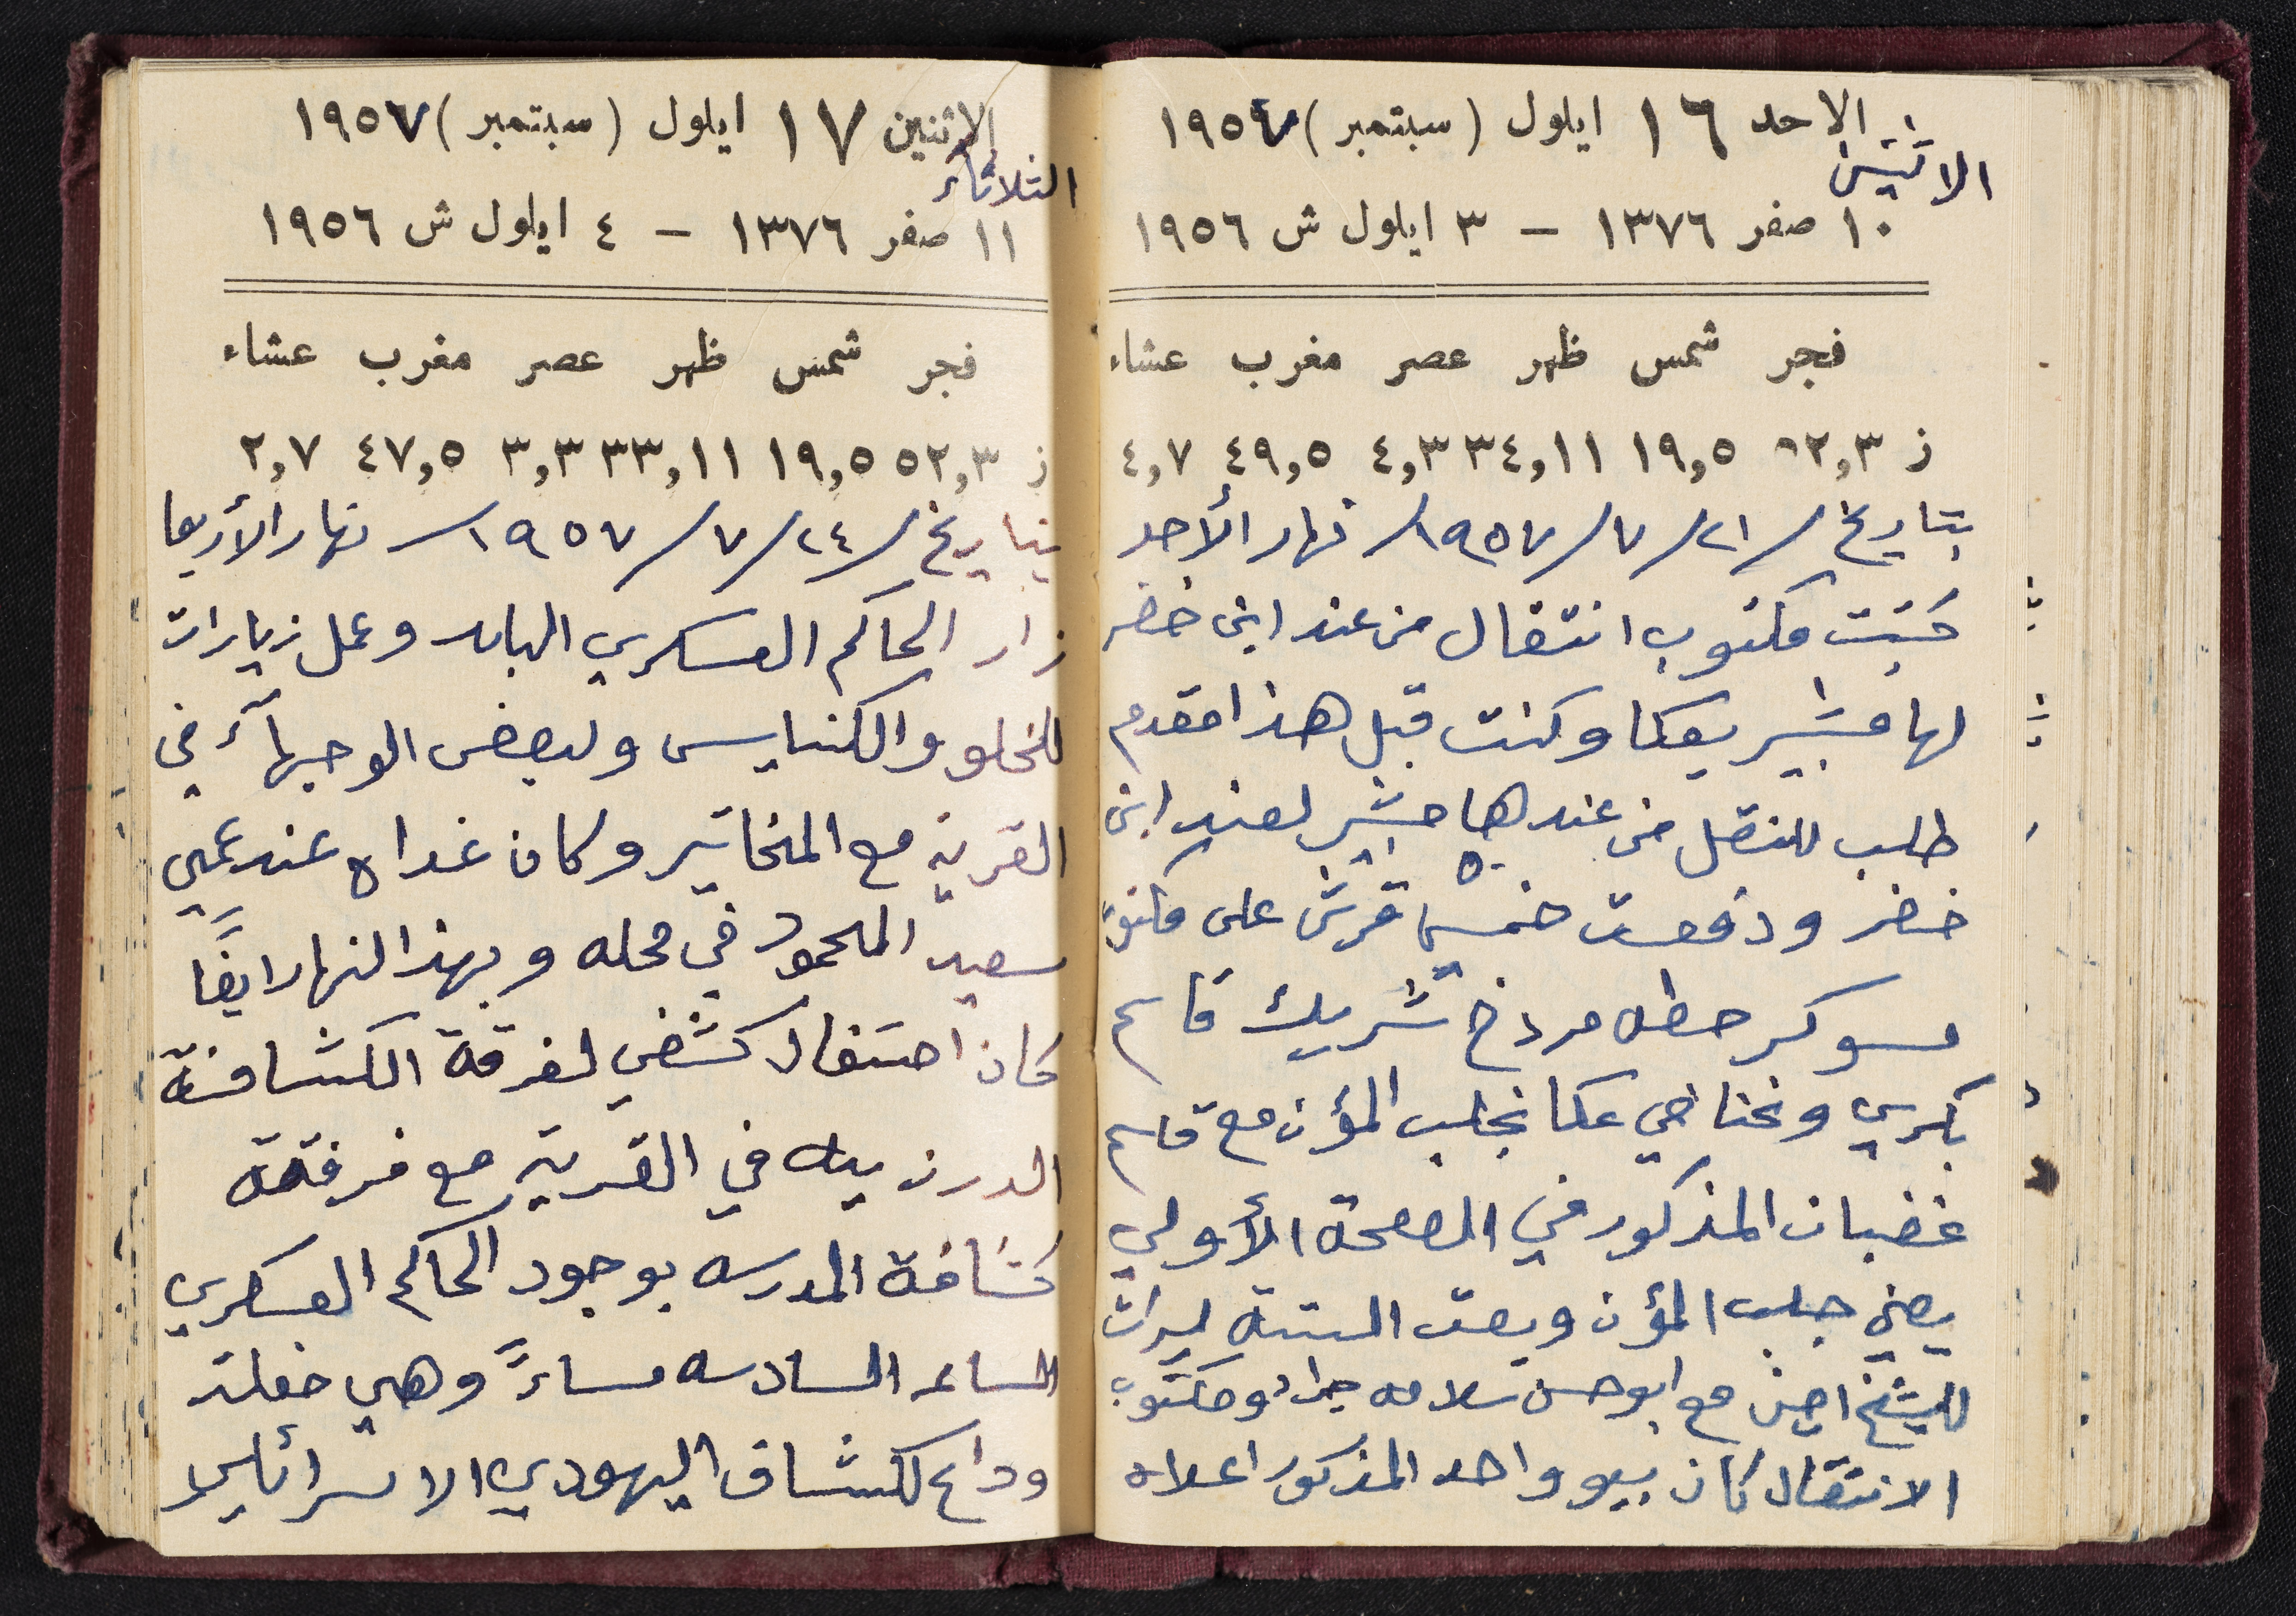 الاحد ١٦ ايلول (سبتمبر) ١٩٥٧
الاثنين
١٠ صفر ١٣٧٦ – ٣ ايلول ش ١٩٥٦
فجر شمس ظهر عصر مغرب عشاء
ز ٥٢,٣ ١٩,٥ ٣٤,١١ ٤,٣ ٤٩,٥ ٤,٧
بتاريخ /٢١/٧/١٩٥٧/ نهار الأحد
كتبت مكتوب انتقال من عند ابن خضر
لها مشير بعكا وكنت قبل هذا مقدم
طلب للنقل من عند ها مشير لعند ابن
خضر ودفعت خمسين ٥٠ قرش على مكتوب
مسوكر حطه مردخ شريك قاسم
بكري ونحنا في عكا نجلب المؤن مع قاسم
غضبان المذكور في الصفحة الأولى
يعني جلب المؤن وبعت الستة ليرات
للشيخ امين مع ابو حسن سلامه ومكتوب
الانتقال كان بيو واحد المذكور اعلاه
الاثنين ١٧ ايلول (سبتمبر) ١٩٥٧
الثلاثاء
١١ صفر ١٣٧٦ – ٤ ايلول ش ١٩٥٦
فجر شمس ظهر عصر مغرب عشاء
ز ٥٢,٣ ١٩,٥ ٣٣,١١ ٣,٣ ٤٧,٥ ٢,٧
بتاريخ /٢٤/٧/١٩٥٧/ نهار الأربعا
زار الحاكم العسكري البلد وعمل زيارات
للخلو والكنايس ولبعض الوجهآء في
القرية مع المخاتير وكان غداه عند عمي
سعيد المحمود في محله وبهذا النهار ايضًا
كان احتفال كشفي لفرقة الكشافة
الدرزيه في القرية مع فرقة
كشافة المدرسه بوجود الحاكم العسكري
الساعه السادسه مساءً وهي حفلة
وداع للكشاف اليهودي الاسرائيلي